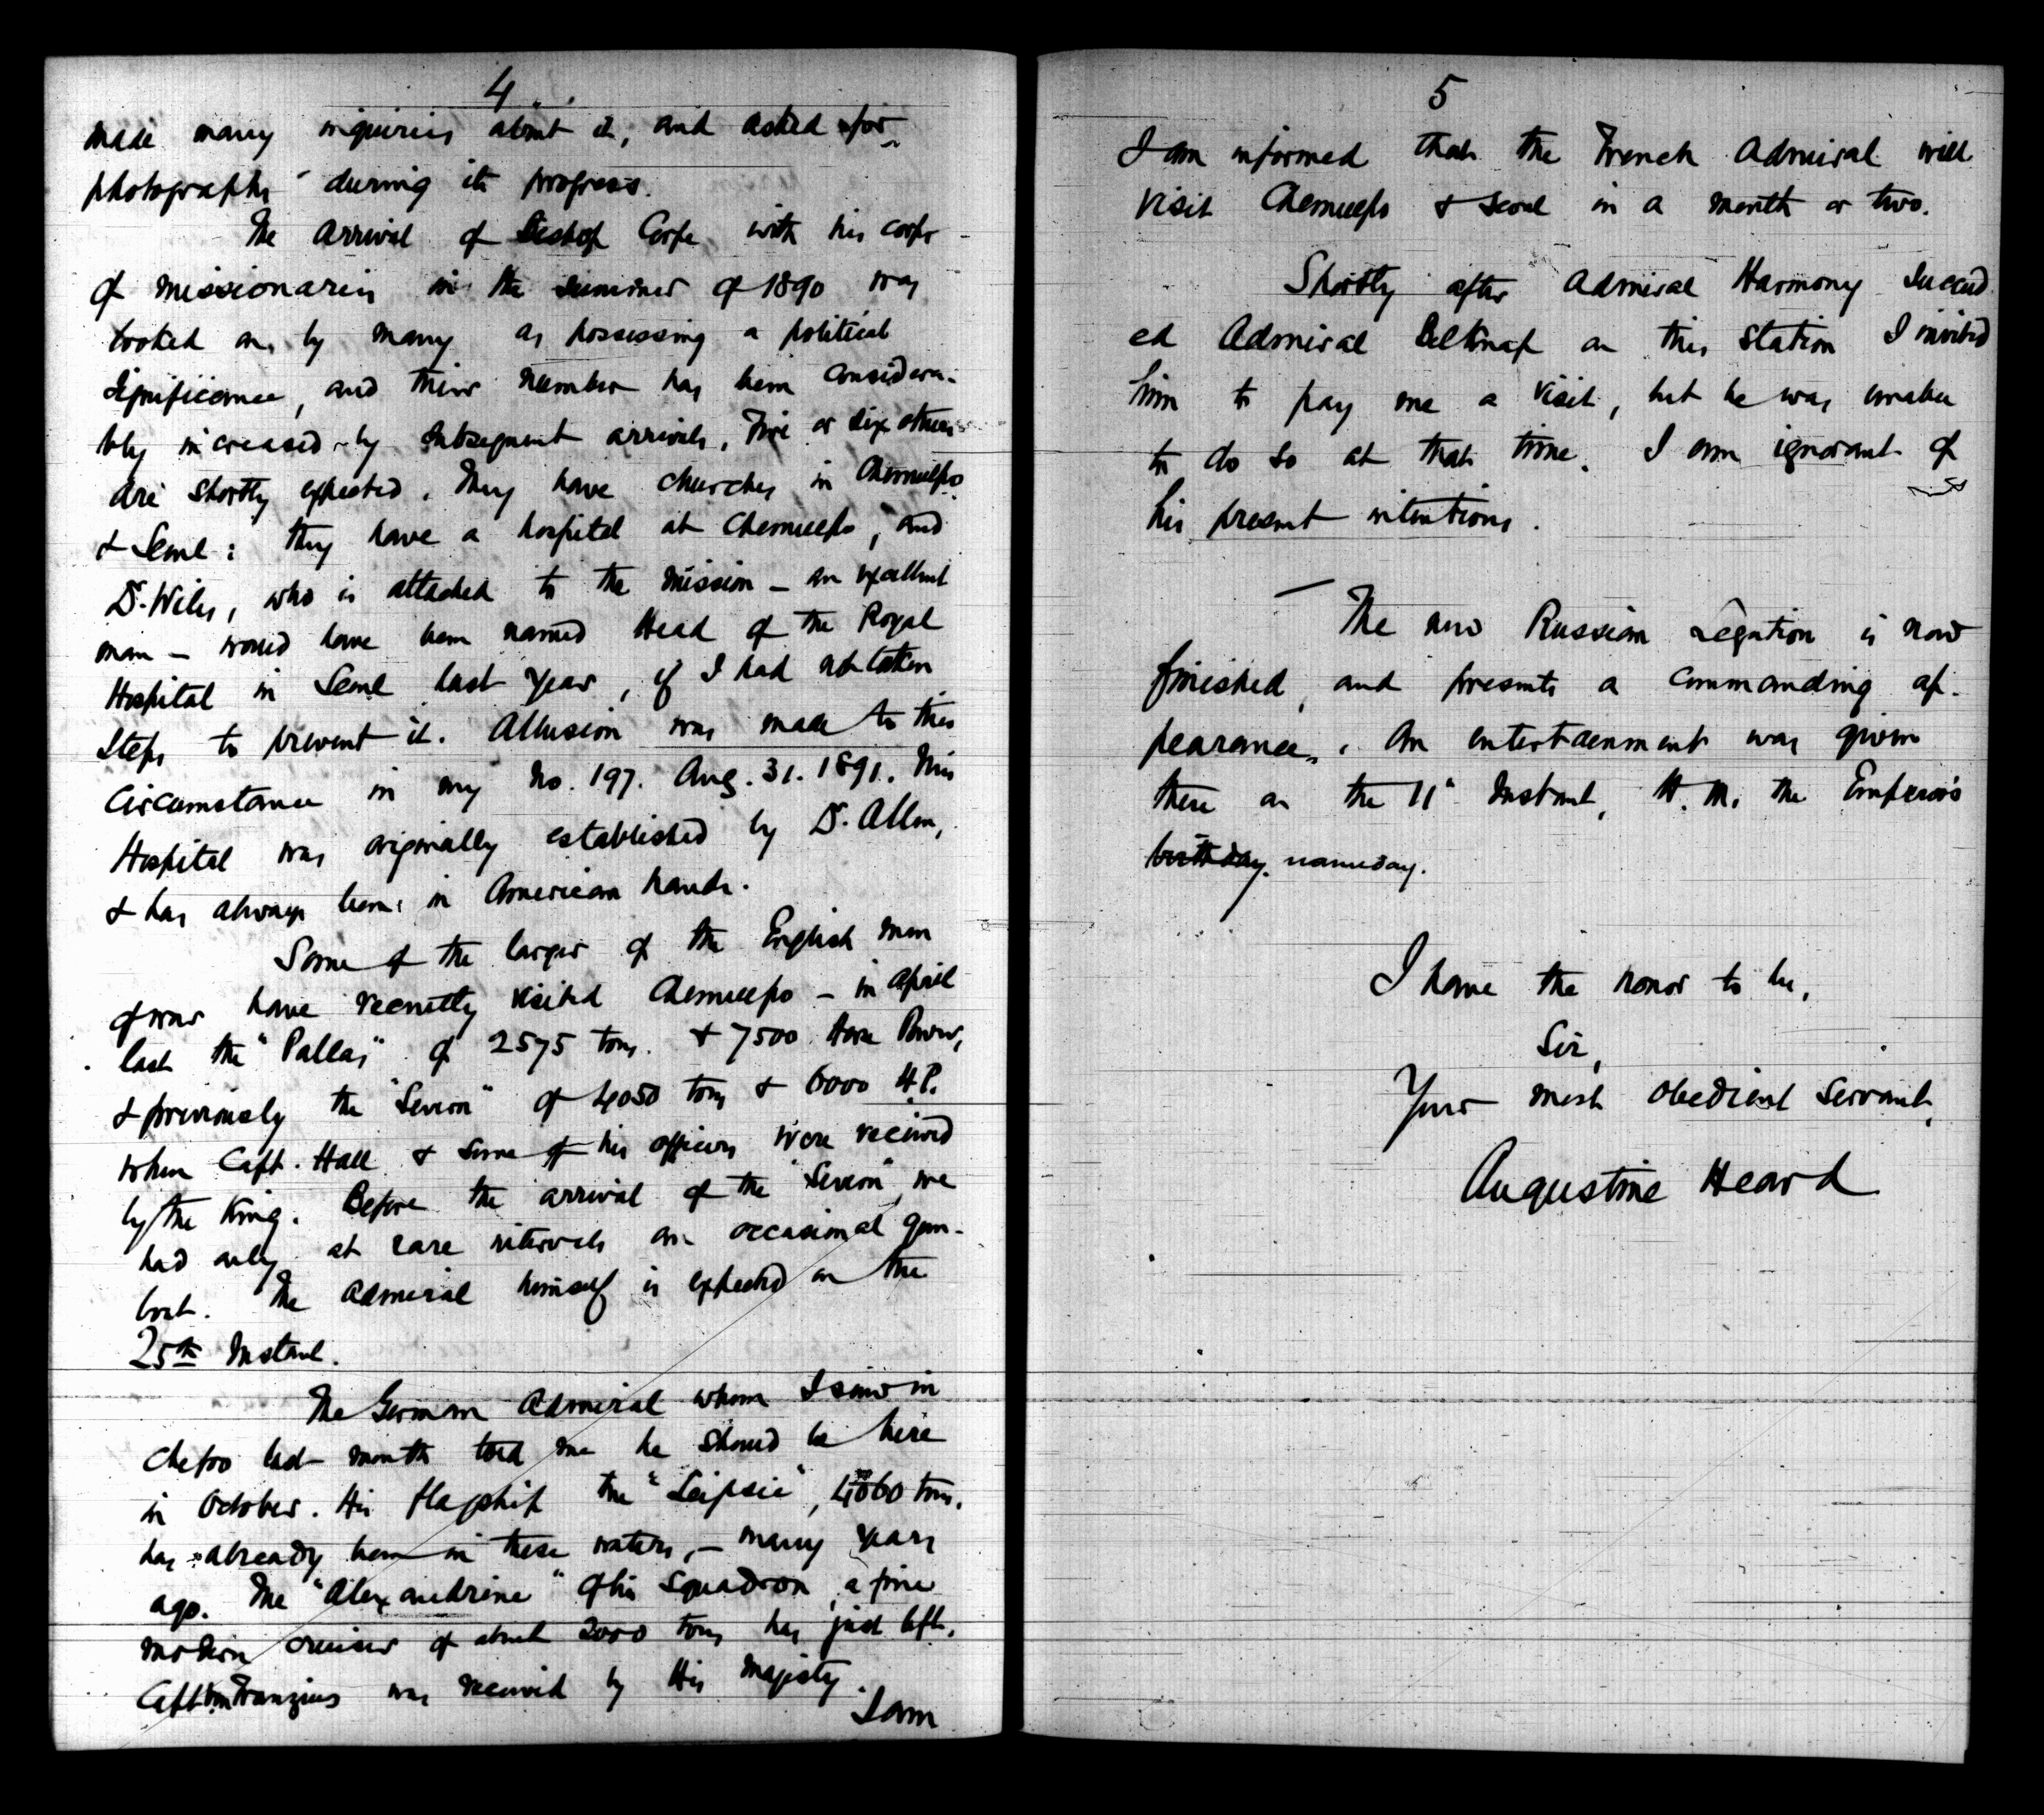 4
made many inquiries about it, and asked for
photographs during its progress.
The arrival of Bishop Corfe with his corps
of missionaries in the summer of 1890 was
looked on, by many as possessing a political
significance, and their number has been considera-
bly increased by subsequent arrivals. Five or six others
are shortly expected. They have churches in Chemulpo
& Seoul: they have a hospital at Chemulpo, and
Dr. Wiles, who is attached to the Mission – an excellent
man – would have been named Head of the Royal
Hospital in Seoul last year, if I had not taken
steps to prevent it. Allusion was made to this
circumstance in my No. 197. Aug. 31. 1891. This
Hospital was originally established by Dr. Allen,
& has always been in American hands.
Some of the larger of the English men
of war have recently visited Chemulpo – in April
last the "Pallas" of 2575 tons. & 7500 Horse Power,
& previously the "Severn" of 4050 tons & 6000 H.P.
when Capt. Hall & some of his officers were received
by the King. Before the arrival of the "Severn" we
had only at rare intervals an occasional gun-
boat. The Admiral himself is expected on the
25th Instant.
The German Admiral whom I saw in
Chefoo last month told me he should be here
in October. His flagship the "Leipsic", tons.
has already been in these waters, – many years
ago. The "Alexandrine" of his Squadron, a fine
modern cruiser of about 2000 tons has just left.
Capt von Franzius was received by His Majesty.
I am
5
I am informed that the French Admiral will
visit Chemulpo & Seoul in a month or two.
Shortly after Admiral Harmony succeed
ed Admiral Belknap on this station I invited
him to pay me a visit, but he was unable
to do so at that time. I am ignorant of
his present intentions.
The new Russian Legation is now
finished, and presents a commanding ap-
pearance. An entertainment was given
there on the 11" Instant, H. M. the Emperor's
birthday. nameday.
I have the honor to be,
Sir,
Your most obedient servant,
Augustine Heard